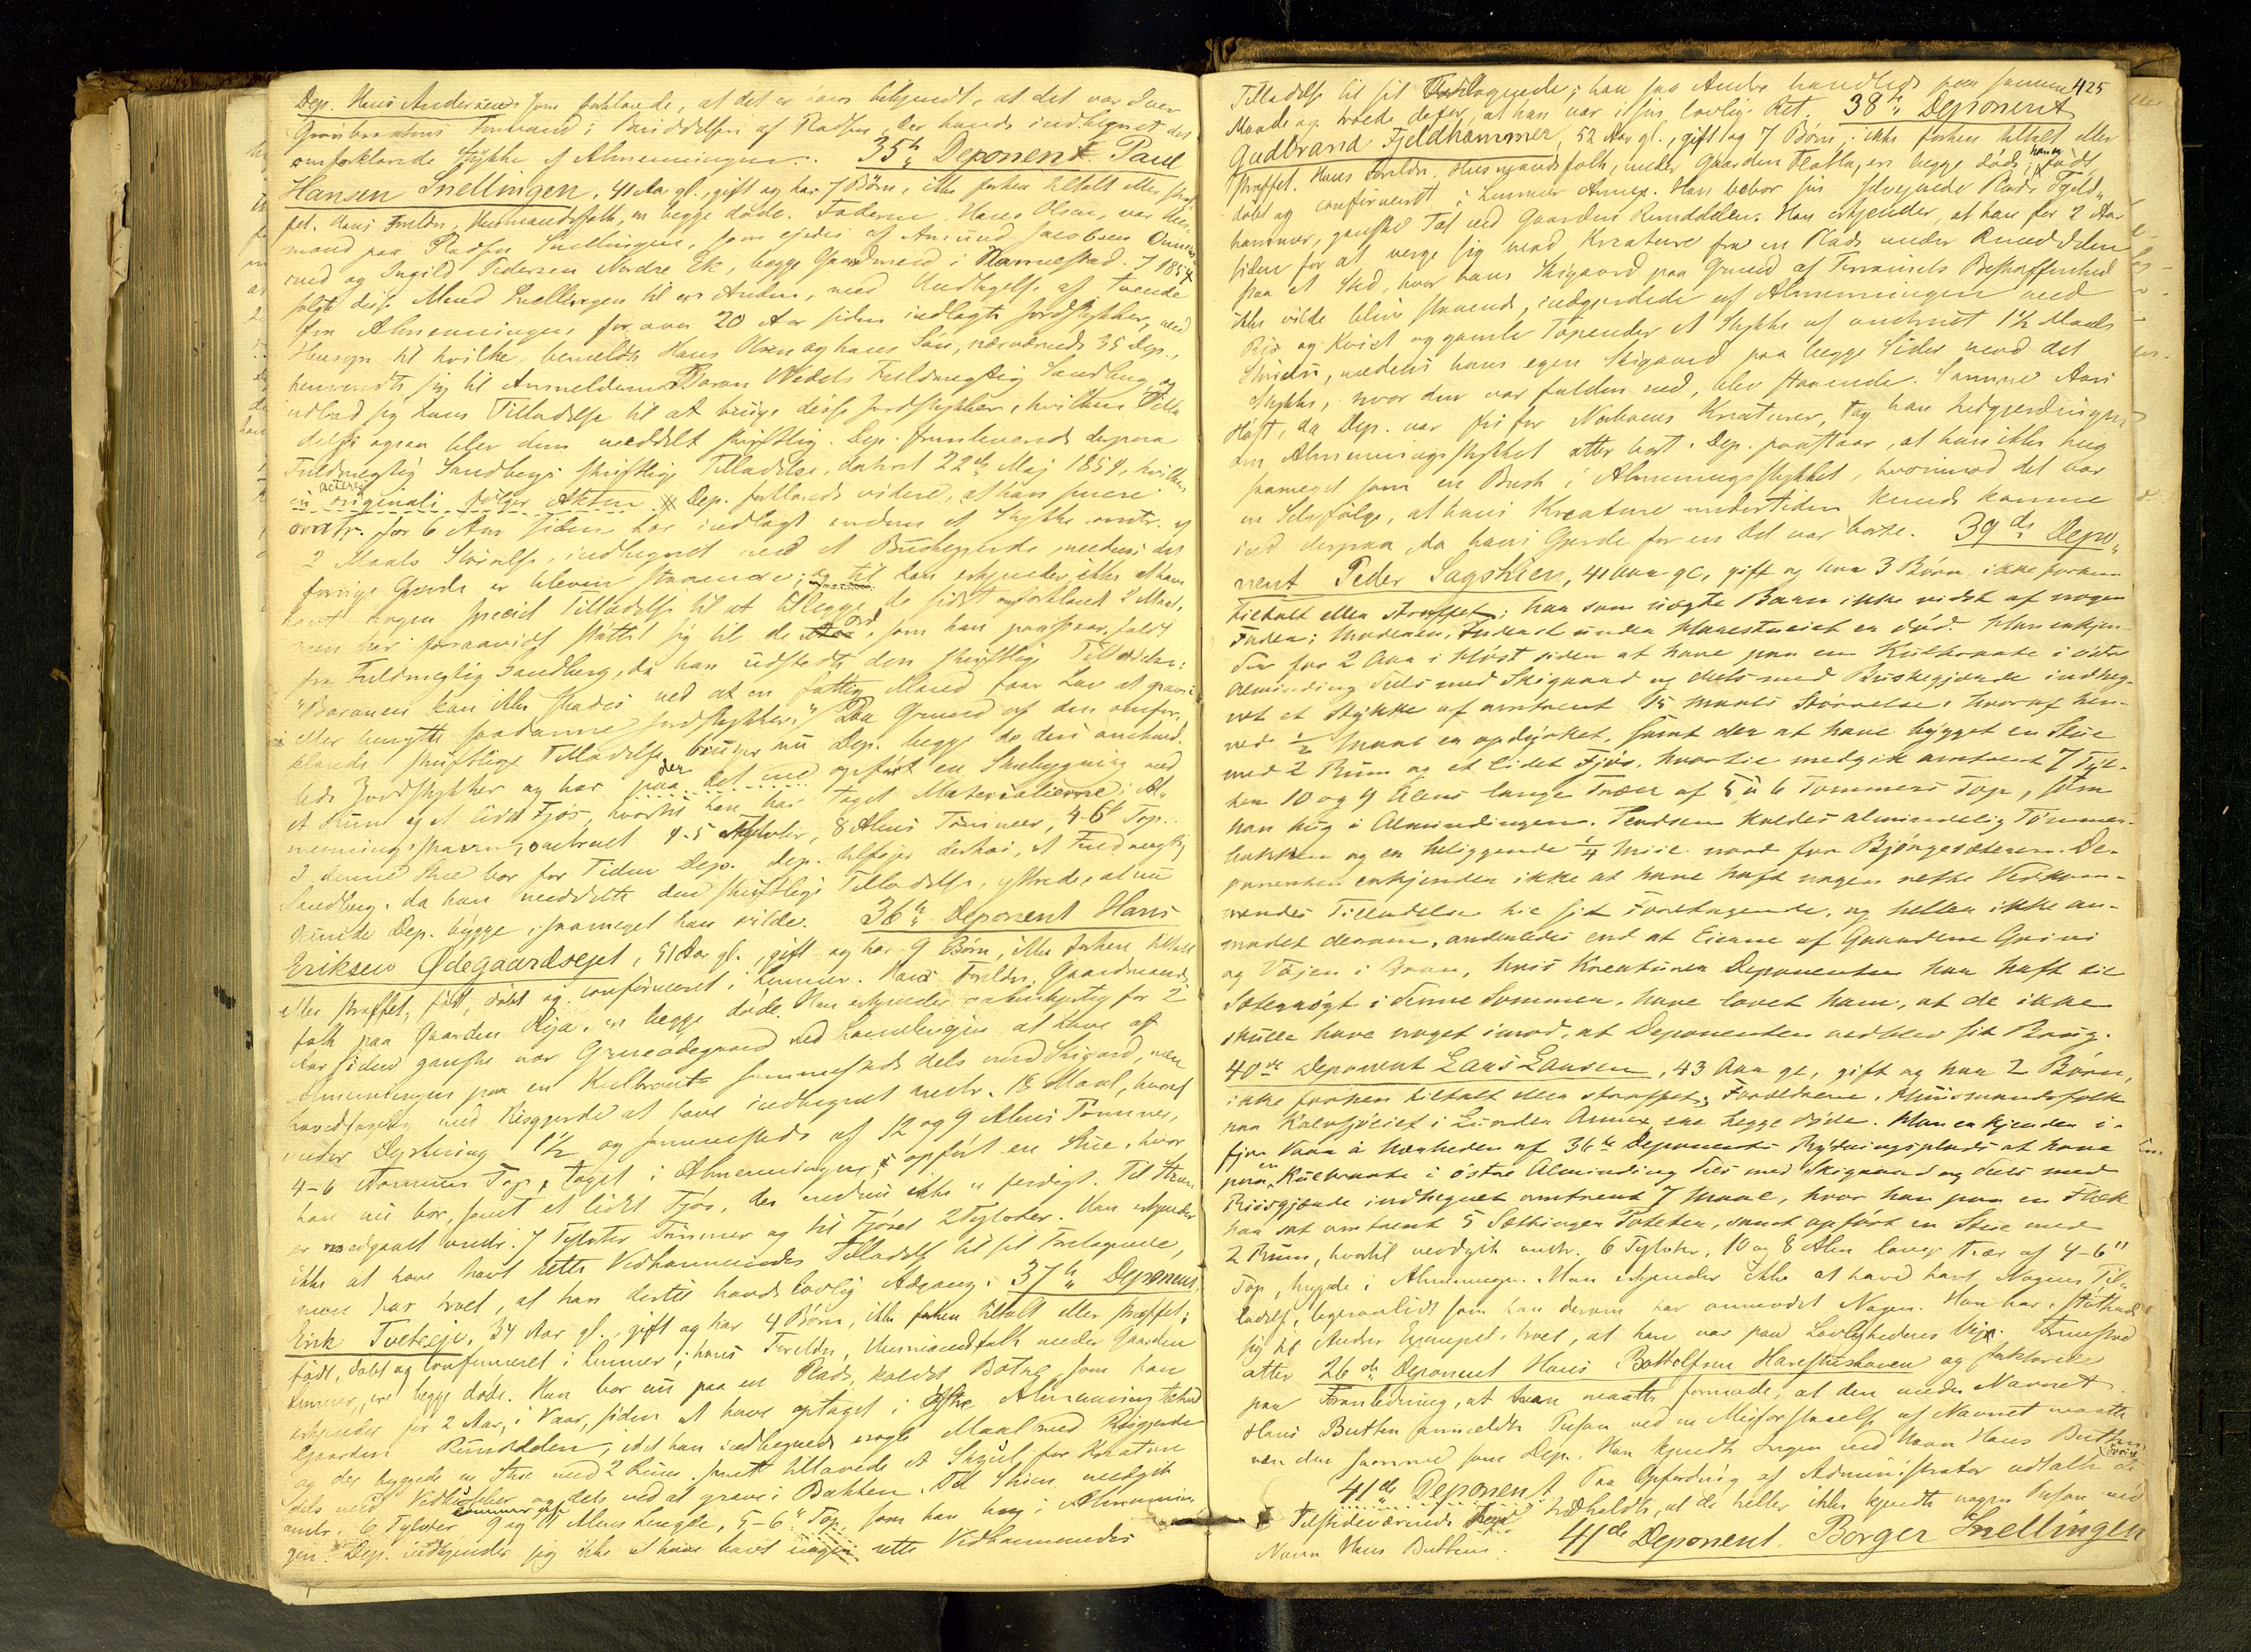 Dep. Hans Andersens som forklarede, at det er ham bekjendt, at det var Iver
Grønbraatens Formand i Besiddelsen af Pladsen, der havde indhegnet det
omforklarede Stykke af Almenningen. 35te Deponent Paul
Hansen Snellingen, 41 Aar gl., gift og har 7 Børn, ikke forhen tiltalt eller straf-
fet. Hans Foreldre, Husmandsfolk, er begge døde. Faderen, Hans Olsen, var Hus-
mand paa Pladsen Snellingen, som ejedes af Amund Jacobsen
og Ingild Pedersen Nordre Ek, begge Gaardmænd i Næennestad. I 1854
solgte disse Mænd Snellingen til en Anden, med Undtagelse af tvende
fra Almenningen for over 20 Aar siden indlagte Jordstykker, med
Hensyn til hvilke bemeldte Hans Olsen og hans Søn, nærværende 35 Dep.,
henvendte sig til Anmelderen Baron Wedels Fuldmægtig Sandberg og
udbad sig hans Tilladelse til at bruge disse Jordstykker, hvilken Tilla
delse ogsaa blev dem meddelt skriftlig. Dep. fremleverede derpaa
Fuldmægtig Sandbergs skriftlige Tilladelse, dateret 22de Maj 1854, hvilken
in originali følger Akten. Dep. forklarede videre, at han senere
omtr. for 6 Aar siden har indlagt endnu et Stykke omtr. af
2 Maals Størrelse, indhegnet med et Buskegjerde, medens det
forrige Gjerde er bleven staaende; og til han erkjender ikke at have
havt nogen speciel Tilladelse til at tillegge de sidst omforklarede 2 Maal,
men har forsaavidt støttet sig til de Ord, som han paastaar, faldt
fra Fuldmægtig Sandberg, da han udstedte den skriftlige Tilladelse:
"Baronen kan ikke skades ved at en fattig Mand faar Lov at grave i
eller benytte saadanne Jordstykker." Paa Grund af den omfor-
klarede skriftlige Tilladelse bruger nu Dep. begge de den omhand-
lede Jordstykker og har paa det ene opført en Stuebygning med
et Rum og et lidet Fjøs, hvortil han har taget Materialierne i Al-
menningsskoven, omtrent 4-5 Tylvter, 8 Alens Tømmer, 4-6" Top.
I denne Stue bor for Tiden Dep. Dep. tilføjer derhos, at Fuldmægtig
Sandberg, da han meddelte den skriftlige Tilladelse, yttrede, at nu
kunde Dep. bygge, saameget han vilde. 36te Deponent Hans
Eriksen Ødegaardsejet, 51 Aar gl., gift og har 9 Børn, ikke forhen tiltalt
eller straffet, født, døbt og confirmeret i Lunner. Hans Foreldre, Gaardmands-
folk paa Gaarden Øija, er begge døde. Han erkjender
Aar siden ganske nær Grueødegaard ved at have af
Almenningen paa en Kulbraate sammesteds dels med Skigard, men
hovedsagelig med Risgjerde at have indhegnet omtr. 12 Maal, hvoraf
under Dyrkning 1½ og sammesteds af 12 og 9 Alens Tømmer,
4-6 Tommer Top, taget i Almenningen, opført en Stue, hvor
han nu bor, samt et lidet Fjøs, der endnu ikke er færdigt. Til Stuen
er medgaaet omtr. 7 Tylvter Tømmer og til Fjøset 2 Tylvter. Han erkjender
ikke at have havt rette Vedkommendes Tilladelse til sit Foretagende,
men har troet, at han dertil havde lovlig Adgang. 37te Deponent
Erik Tveteeje, 34 Aar gl., gift og har 4 Børn, ikke forhen tiltalt eller straffet;
født, døbt og confirmeret i Lunner; hans Foreldre, Husmandsfolk under Gaarden
, ere begge døde. Han bor nu paa en Plads, kaldet Botne som han
erkjender for 2 Aar, i Vaar, siden at have optaget i Østre Almenning
Gaarden Rundelen, idet han indhegnede nogle Maal med Risgjerde
og der byggede en Stue med 2 Rum, samt tillavede et Skjul for Kreature
dels med og dels ved at grave i Bakken. Til Stuen medgik
omtr. 6 Tylvter 9 og 11 Alens Længde, 5-6" Top, som han hug i Almennin
gen. Dep. erkjender sig ikke at have havt nogen rette Vedkommendes
425
Tilladelse til sit Foretagende; han saa Andre handlede paa samme
Maade og troede derfor, at han var i sin lovlige Ret. 38te Deponent
Gudbrand Fjeldhammer, 52 Aar gl., gift og 7 Børn, ikke forhen tiltalt eller
straffet. Hans Foreldre, Husmandsfolk, under Gaarden Flatla, er begge døde; han er født,
døbt og confirmeret i Lunner Annex. Han bebor sin selvejende Plads Fjeld-
hammer, ganske tæt ved Gaarden Rundelen. Han erkjender, at han for 2 Aar
siden for at verge sig mod Kreature fra en Plads under Rundelen
paa et Sted, hvor hans Skigaard paa Grund af Terrainets Beskaffenhed
ikke vilde blive staaende, indgjerdede af Almenningen med
Ris og Kvist og gamle Topender et Stykke af omtrent 1½ Maals
Vidde, medens hans egen Skigaard paa begge Sider mod det
Stykke, hvor den var falden ned, blev staaende. Samme Aars
Høst, da Dep. var fri for Naboens Kreaturer, tog han Indgjerdningen
om Almenningsstykket atter bort. Dep. paastaar, at han ikke hug
saameget som en Busk i Almenningsstykket, hvorimod det var
en Selvfølge, at hans Kreature undertiden kunde komme
ind derpaa, da hans Gjerde for en Del var borte. 39de Depo-
nent Peder Sagshien, 41 Aar gl., gift og har 3 Børn ikke forhen
tiltalt eller straffet; har som uægte Barn ikke vidst af nogen
Fader; Moderen, Inderst under Harestueiet er død. Han erkjen-
der for 2 Aar i Høst siden at have paa en Kulbraate i østre
Alminding Dels med Skigaard og dels med Buskegjærde indheg-
net et Stykke af omtrent 15 Maals Størrelse, hvoraf hen-
ved ½ Maal er opdyrket, samt der at have bygget en Stue
med 2 Rum og et lidet Fjøs, hvortil medgik omtrent 7 Tyl-
ter 10 og 9 Alens lange Træer af 5 à 6 Tommers Top, som
han hug i Almindingen. Pladsen kaldes almindelig Tømmer-
bakken og er beliggende ¼ Miil nord for Bjørgesæteren. De-
ponenten erkjender ikke at have haft nogen rette Vedkom-
mendes Tilladelse til sit Foretagende, og heller ikke an-
modet derom, anderledes end at Eierne af Gaardene Grini
og Vøien i Gran, hvis Kreaturer Deponenten har haft til
Sæterrøgt i denne Sommer, have lovet ham, at de ikke
skulle have noget imod, at Deponenten vedblev sit Brug.
40de Deponent Lars Larsen, 43 Aar gl, gift og har 2 Børn,
ikke forhen tiltalt eller straffet; Forældrene, Huusmandsfolk
paa Kalvsjøeiet i Lunder Annex, ere begge døde. Han erkjender i
fjor Vaar i Nærheden af 36te Deponents Rydningsplads at have
paa en Kulbraate i østre Alminding Dels med Skigaard og dels med
Riisgjærde indhegnet omtrent 7 Maal, hvor han paa en Flek
har sat omtrent 5 Sættinger Poteter, samt opført en Stue med
2 Rum, hvortil medgik omtr. 6 Tylvter, 10 og 8 Alen lange Træer af 4-6"
Top, huggede i Almenningen. Han erkjender ikke at have havt Nogens Til-
ladelse, ligesaalidt som han derom har anmodet Nogen. Han har, støttende
sig til Andres Exempel, troet, at han var paa Lovlighedens Vej. Fremstod
atter 26de Deponent Hans Bottolfsen Harestuehaven og forklarede
paa Foranledning, at han maatte formode, at den under Navnet
Hans Butten anmeldte Person ved en Misforstaaelse af Navnet maatte
være den samme som Dep. Han kjendte Ingen ved Navn Hans Butten.
41de Deponent Paa Opfordring af Administrator udtalte de øvrige
Tilstedeværende Thinghold, at de heller ikke kjendte nogen Person ved
Navn Hans Butten. 41de Deponent, Borger Snellingen